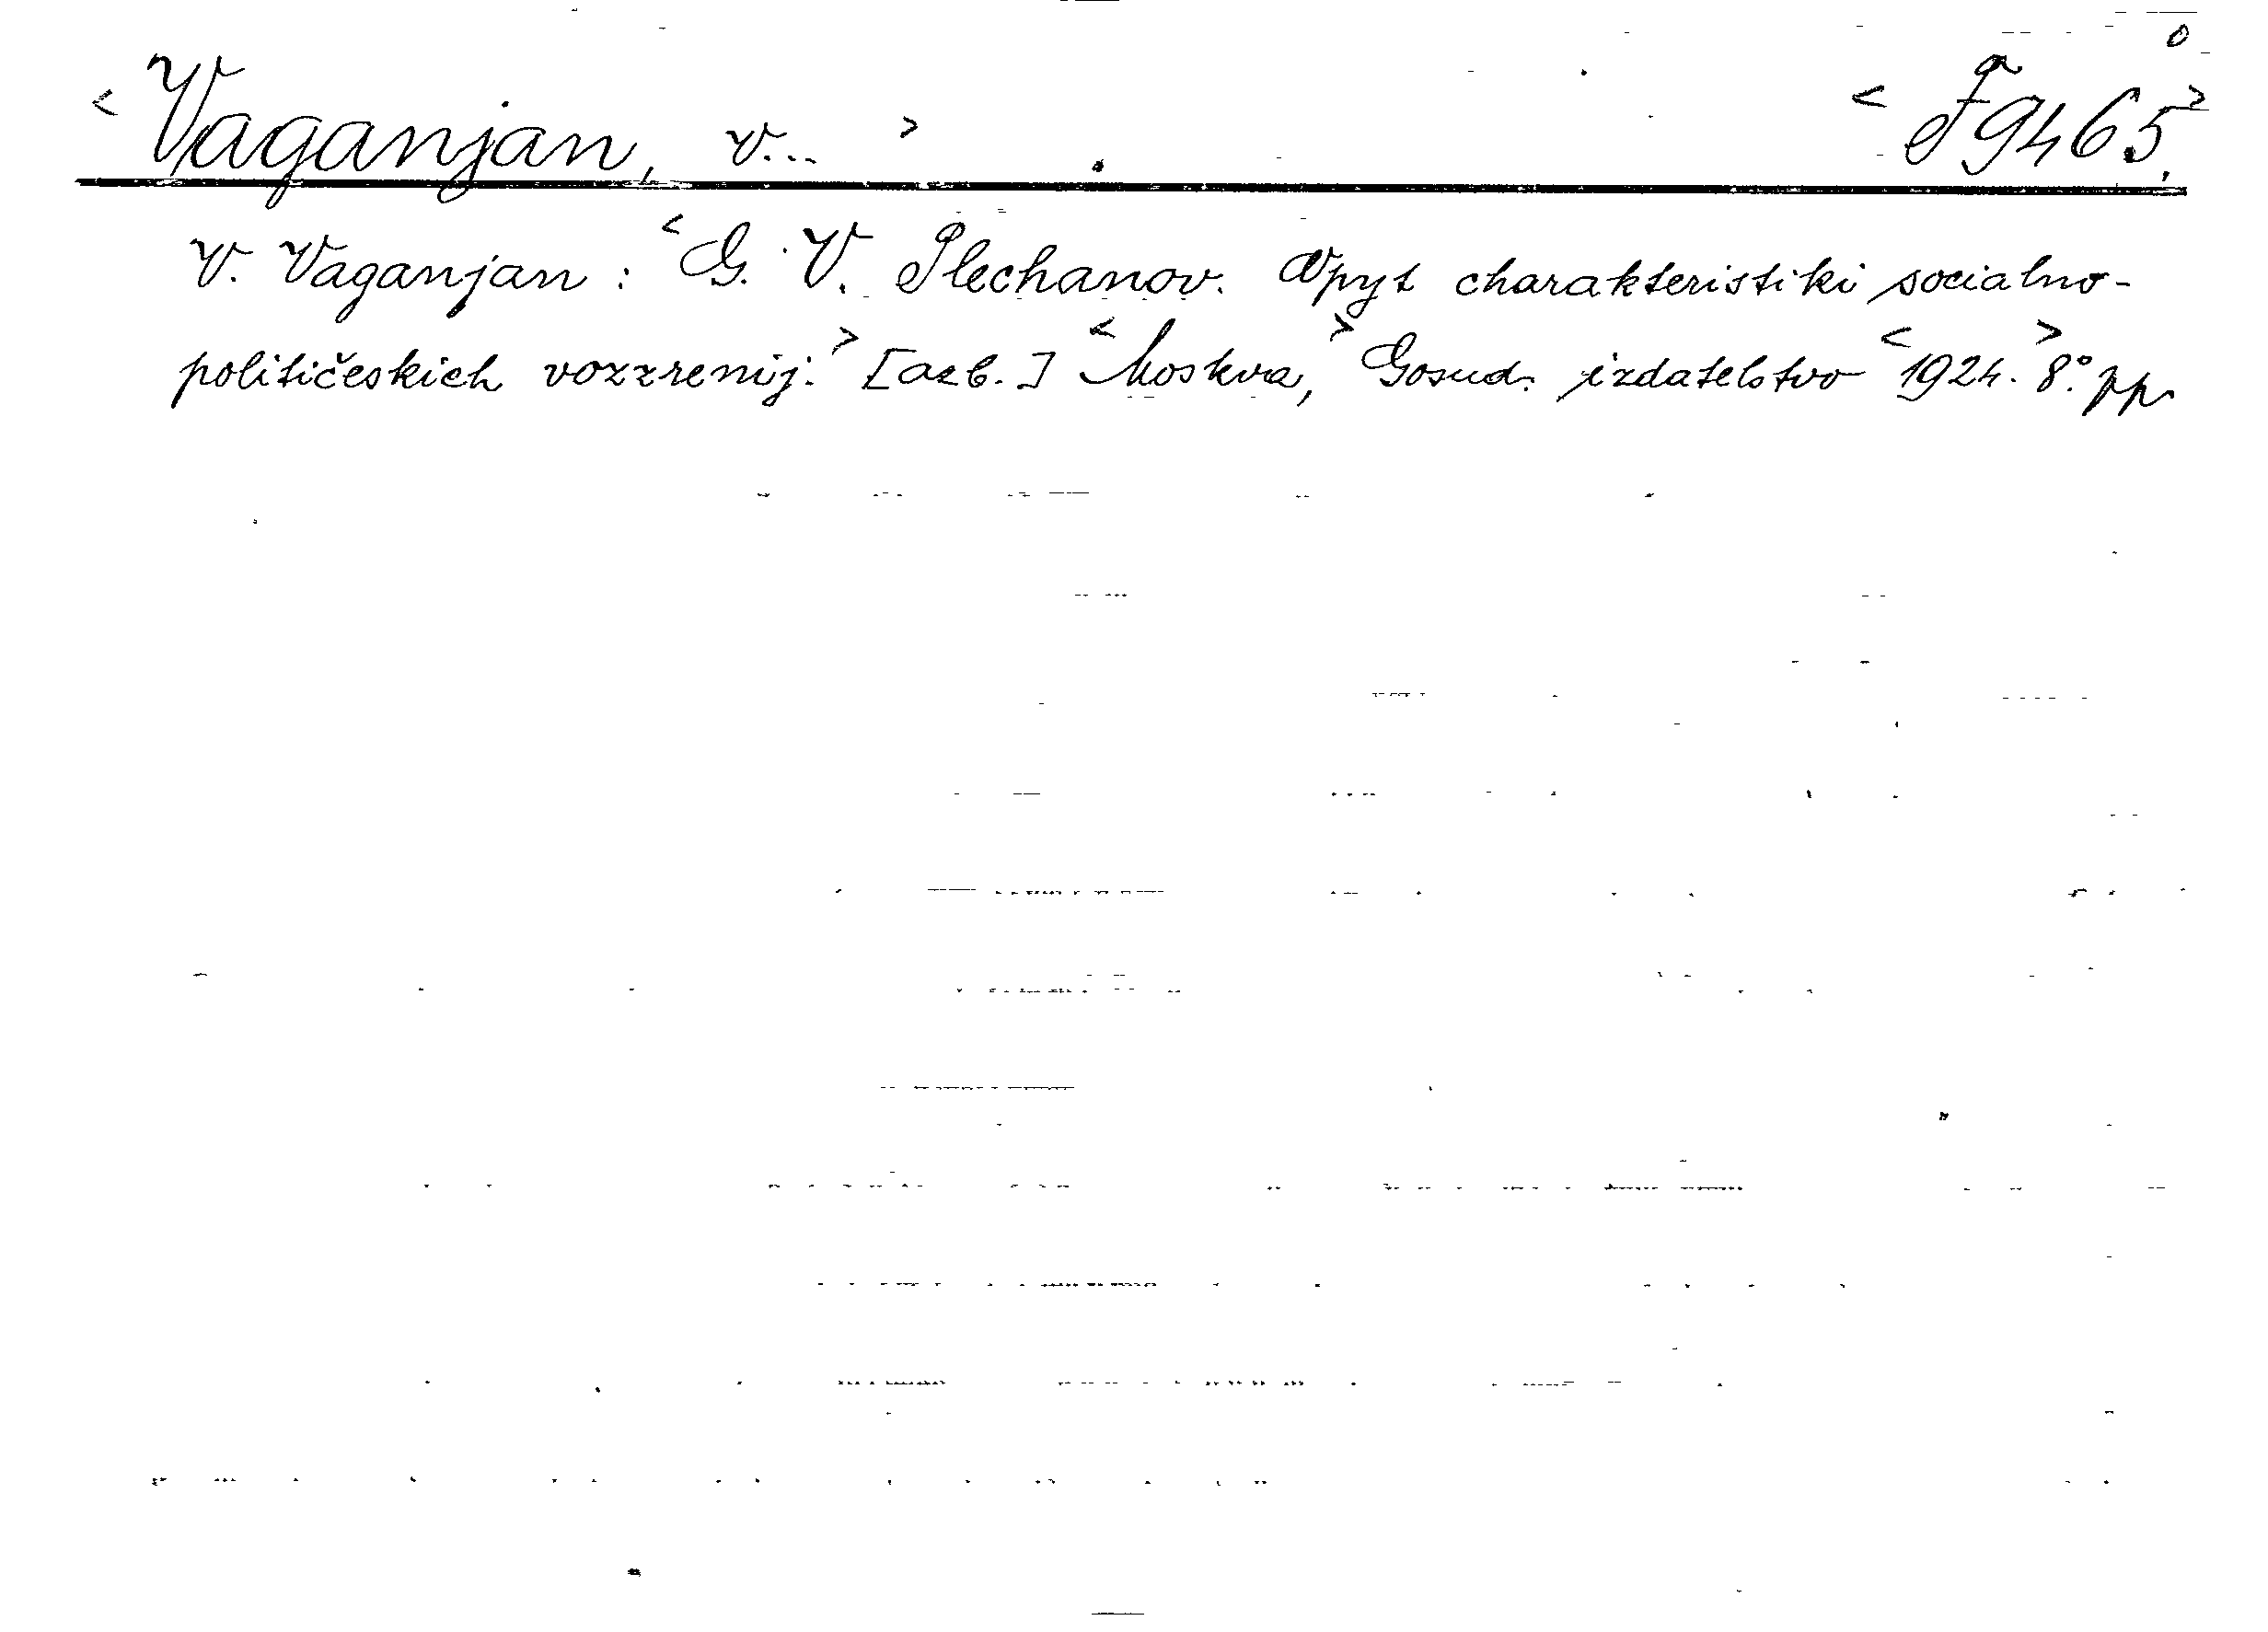 <Vaganjan, V...> <F9465.>
V. Vaganjan: <G. V. Plechanov. Opyt charakteristiki socialno-
političeskich vozzrenij.> [azb.] <Moskva,> Gosud. izdatelstvo <1924.> 8°. pp.